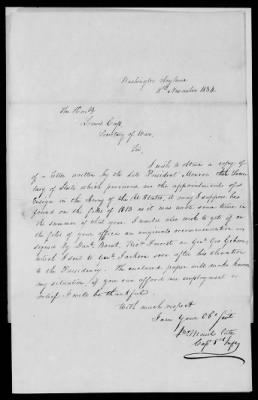 Washington
8th November 1834
The Honbl
Lewis Cass
Secretary of War.
Sir,
I wish to obtain a copy of
of a letter written by the late President Monroe then Secre
tary of State which procured me the appointment of
Ensign in the Army of the U. States, it may I suppose be
found on the files of 1813 as it was some time in
the summer of that year. I would also wish to get of on
the files of your office an original recommendation
signed by Danl.
which I sent to Genl. Jackson soon after his elevation
to the Presidency. The enclosed paper will make known
my situation, if you can afford me employment or
relief I will be thankful
With much respect
I am your Obt. Servt